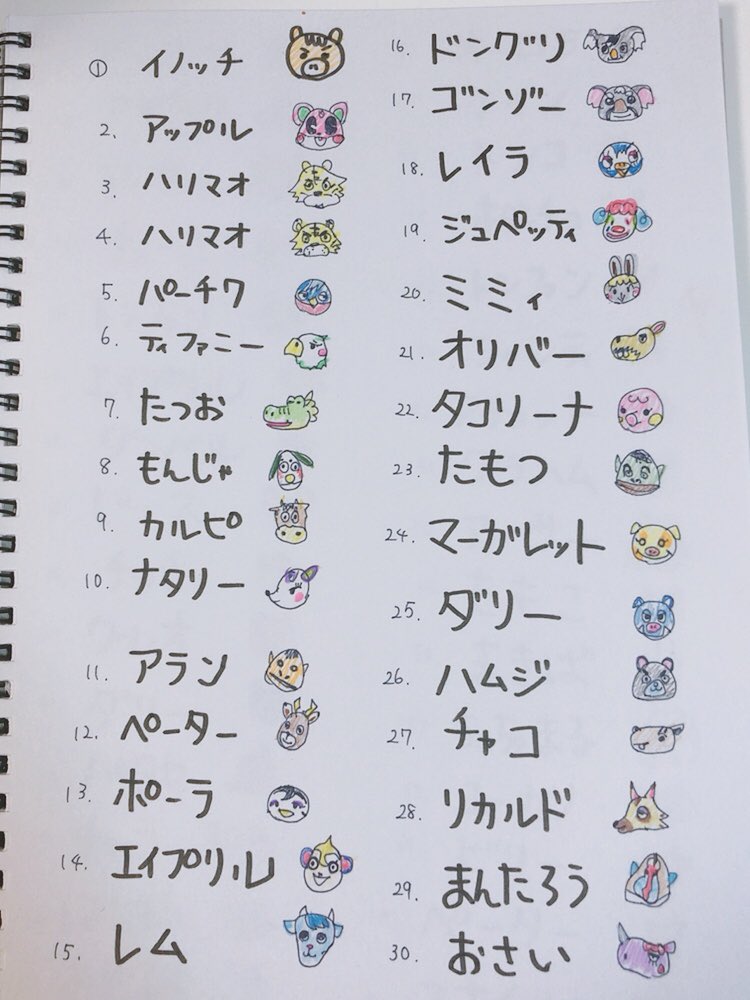 ① イノッチ
2、 アップル
3. ハリマオ
4. ハリマオ
5. パーチク
6. ティファニー
7. たつお
8. もんじゃ
9. カルピ
10. ナタリー
11. アラン
12. ペーター
13. ポーラ
14. エイプリル
15. レム
16. ドングリ
17. ゴンゾー
18. レイラ
19. ジュペッティ
20. ミミィ
21. オリバー
22. タコリーナ
23. たもつ
24. マーガレット
25. ダリー
26. ハムジ
27. チャコ
28. リカルド
29. まんたろう
30. おさい